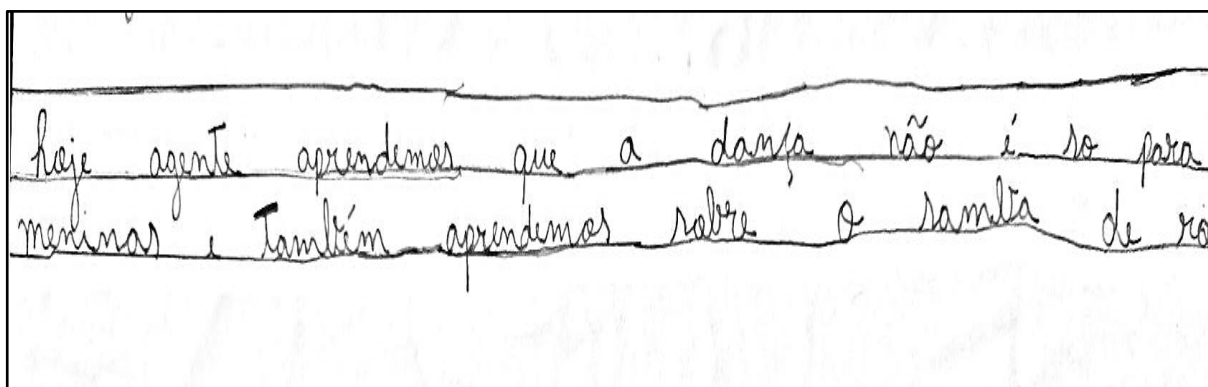 hoje agente aprendemos que a dança não é so para
meninas e também aprendemos sobre o samba de